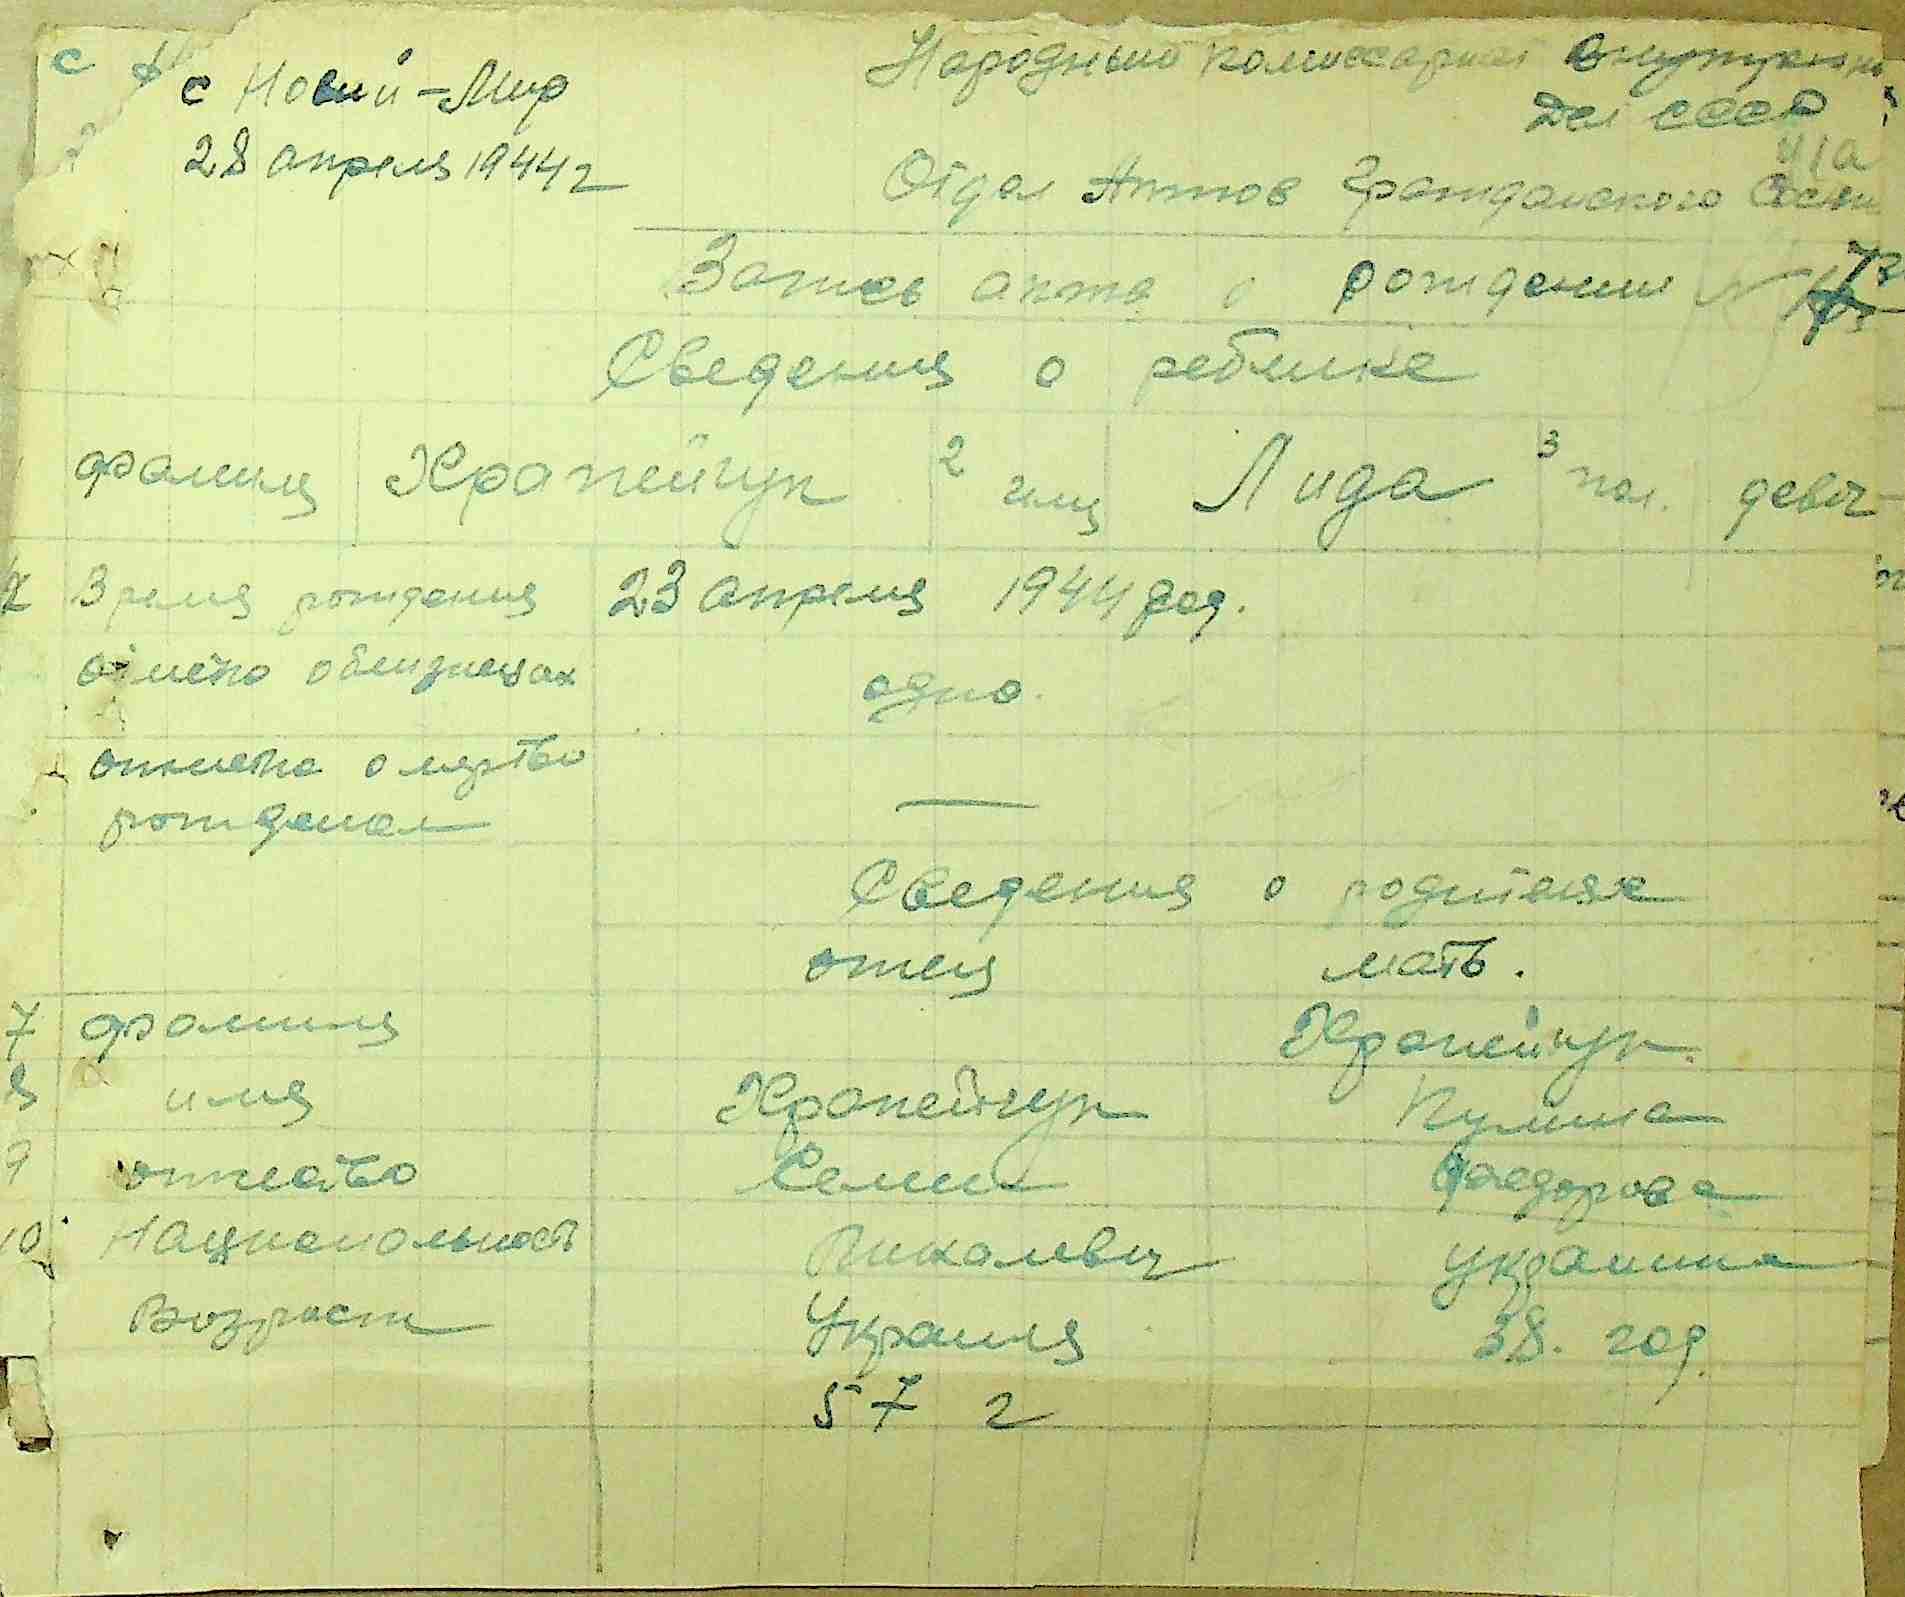 с Новий-Мир
28 апреля 1944 г
Народный комиссариат Внутренни
Дел СССР
Отдел Актов Гражданского Состаи
Запись акта о рождении N 73
Сведения о ребянке
фамиля Храпейчук 2 имя Лида 3 пол. девоч
4 Время рождения 23 апреля 1944 год.
отмето о близнецах одно.
отмета о мертво
рожденом —
Сведения о родителях
отец мать.
7 фамиля Храпейчук.
8 имя Храпейчук
9 отчество Семен Фаедорова
10 Национальност Украинка
Возраст Украиня 38. год.
57 г